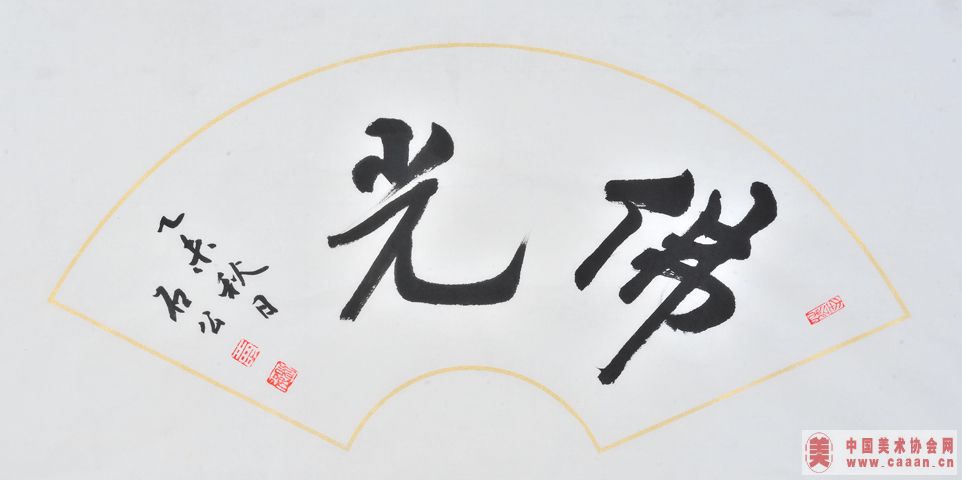 佛光
乙未秋日
石公
美 中国美术协会网
www.caaan.cn